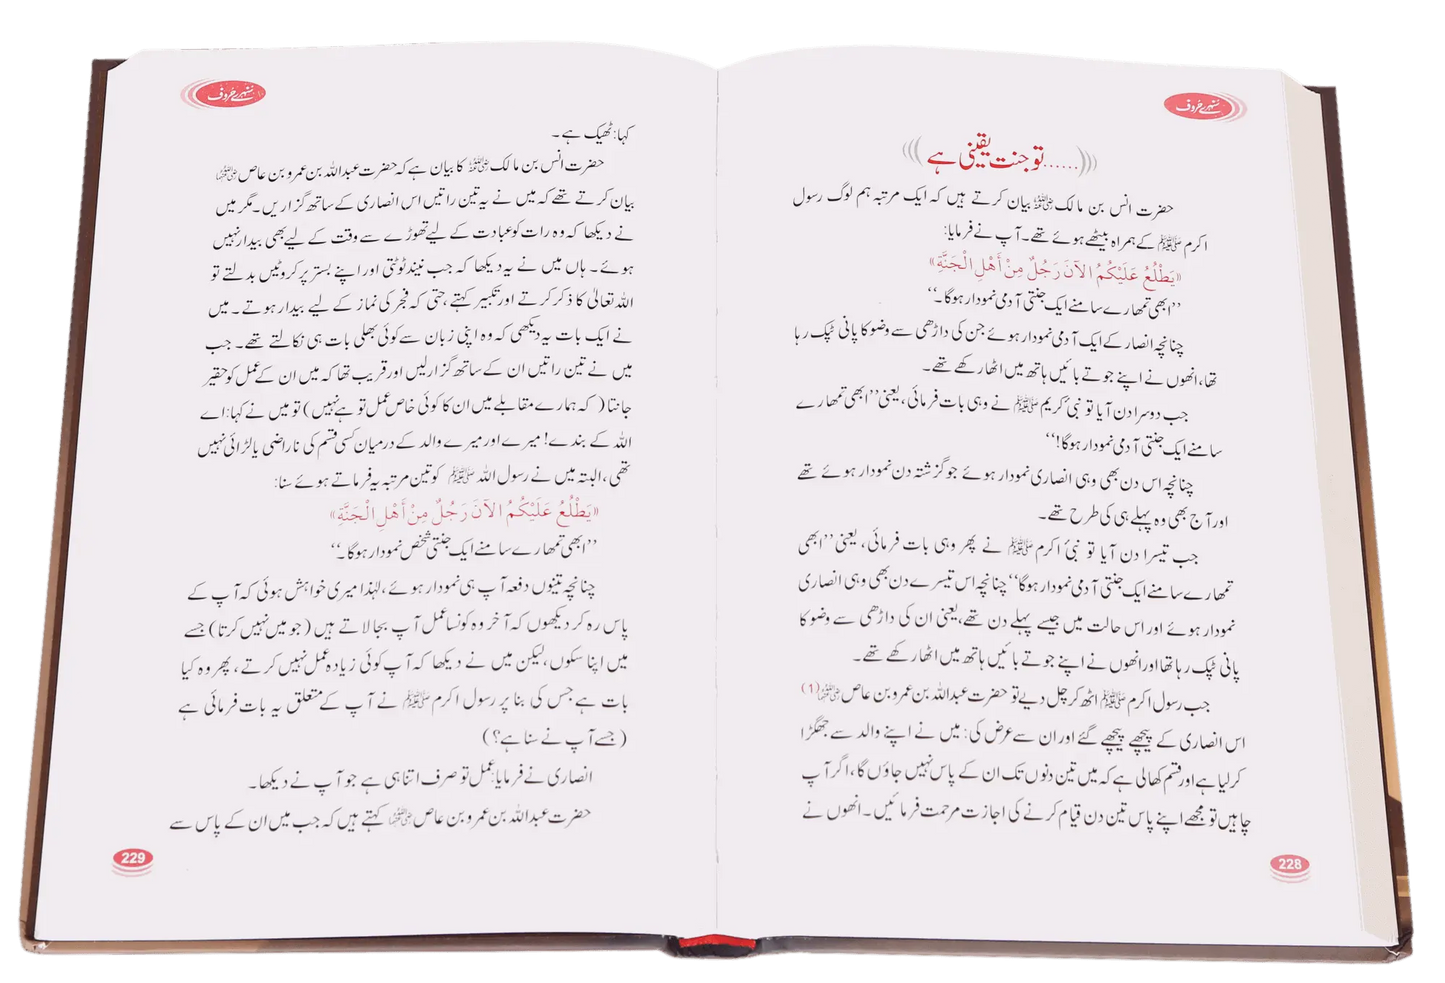 سنہرے حروف
......تو جنت یقینی ہے
حضرت انس بن مالک رضی اللہ عنہ بیان کرتے ہیں کہ ایک مرتبہ ہم لوگ رسول
اکرم ﷺ کے ہمراہ بیٹھے ہوئے تھے۔ آپ نے فرمایا:
«يَطْلُعُ عَلَيْكُمُ الآنَ رَجُلٌ مِنْ أَهْلِ الْجَنَّةِ»
’’ابھی تمھارے سامنے ایک جنتی آدمی نمودار ہوگا۔‘‘
چنانچہ انصار کے ایک آدمی نمودار ہوئے جن کی داڑھی سے وضو کا پانی ٹپک رہا
تھا، انھوں نے اپنے جوتے بائیں ہاتھ میں اٹھا رکھے تھے۔
جب دوسرا دن آیا تو نبی کریم ﷺ نے وہی بات فرمائی، یعنی ’’ابھی تمھارے
سامنے ایک جنتی آدمی نمودار ہوگا!‘‘
چنانچہ اس دن بھی وہی انصاری نمودار ہوئے جو گزشتہ دن نمودار ہوئے تھے
اور آج بھی وہ پہلے ہی کی طرح تھے۔
جب تیسرا دن آیا تو نبیٔ اکرم ﷺ نے پھر وہی بات فرمائی، یعنی ’’ابھی
تمھارے سامنے ایک جنتی آدمی نمودار ہوگا‘‘ چنانچہ اس تیسرے دن بھی وہی انصاری
نمودار ہوئے اور اس حالت میں جیسے پہلے دن تھے، یعنی ان کی داڑھی سے وضو کا
پانی ٹپک رہا تھا اور انھوں نے اپنے جوتے بائیں ہاتھ میں اٹھا رکھے تھے۔
جب رسول اکرم ﷺ اٹھ کر چل دیے تو حضرت عبداللہ بن عمرو بن عاص رضی اللہ عنہما (1)
اس انصاری کے پیچھے پیچھے گئے اور ان سے عرض کی: میں نے اپنے والد سے جھگڑا
کرلیا ہے اور قسم کھالی ہے کہ میں تین دنوں تک ان کے پاس نہیں جاؤں گا، اگر آپ
چاہیں تو مجھے اپنے پاس تین دن قیام کرنے کی اجازت مرحمت فرمائیں۔ انھوں نے
228
سنہرے حروف
کہا: ٹھیک ہے۔
حضرت انس بن مالک رضی اللہ عنہ کا بیان ہے کہ حضرت عبداللہ بن عمرو بن عاص رضی اللہ عنہما
بیان کرتے تھے کہ میں نے یہ تین راتیں اس انصاری کے ساتھ گزاریں۔ مگر میں
نے دیکھا کہ وہ رات کو عبادت کے لیے تھوڑے سے وقت کے لیے بھی بیدار نہیں
ہوئے۔ ہاں میں نے یہ دیکھا کہ جب نیند ٹوٹتی اور اپنے بستر پر کروٹیں بدلتے تو
اللہ تعالیٰ کا ذکر کرتے اور تکبیر کہتے، حتی کہ فجر کی نماز کے لیے بیدار ہوتے۔ میں
نے ایک بات یہ دیکھی کہ وہ اپنی زبان سے کوئی بھلی بات ہی نکالتے تھے۔ جب
میں نے تین راتیں ان کے ساتھ گزارلیں اور قریب تھا کہ میں ان کے عمل کو حقیر
جانتا (کہ ہمارے مقابلے میں ان کا کوئی خاص عمل تو ہے نہیں) تو میں نے کہا: اے
اللہ کے بندے! میرے اور میرے والد کے درمیان کسی قسم کی ناراضی یا لڑائی نہیں
تھی، البتہ میں نے رسول اللہ ﷺ کو تین مرتبہ یہ فرماتے ہوئے سنا:
«يَطْلُعُ عَلَيْكُمُ الآنَ رَجُلٌ مِنْ أَهْلِ الْجَنَّةِ»
’’ابھی تمھارے سامنے ایک جنتی شخص نمودار ہوگا۔‘‘
چنانچہ تینوں دفعہ آپ ہی نمودار ہوئے، لہٰذا میری خواہش ہوئی کہ آپ کے
پاس رہ کر دیکھوں کہ آخر وہ کونسا عمل آپ بجا لاتے ہیں (جو میں نہیں کرتا) جسے
میں اپنا سکوں، لیکن میں نے دیکھا کہ آپ کوئی زیادہ عمل نہیں کرتے، پھر وہ کیا
بات ہے جس کی بنا پر رسول اکرم ﷺ نے آپ کے متعلق یہ بات فرمائی ہے
(جسے آپ نے سنا ہے؟)
انصاری نے فرمایا: عمل تو صرف اتنا ہی ہے جو آپ نے دیکھا۔
حضرت عبداللہ بن عمرو بن عاص رضی اللہ عنہما کہتے ہیں کہ جب میں ان کے پاس سے
229